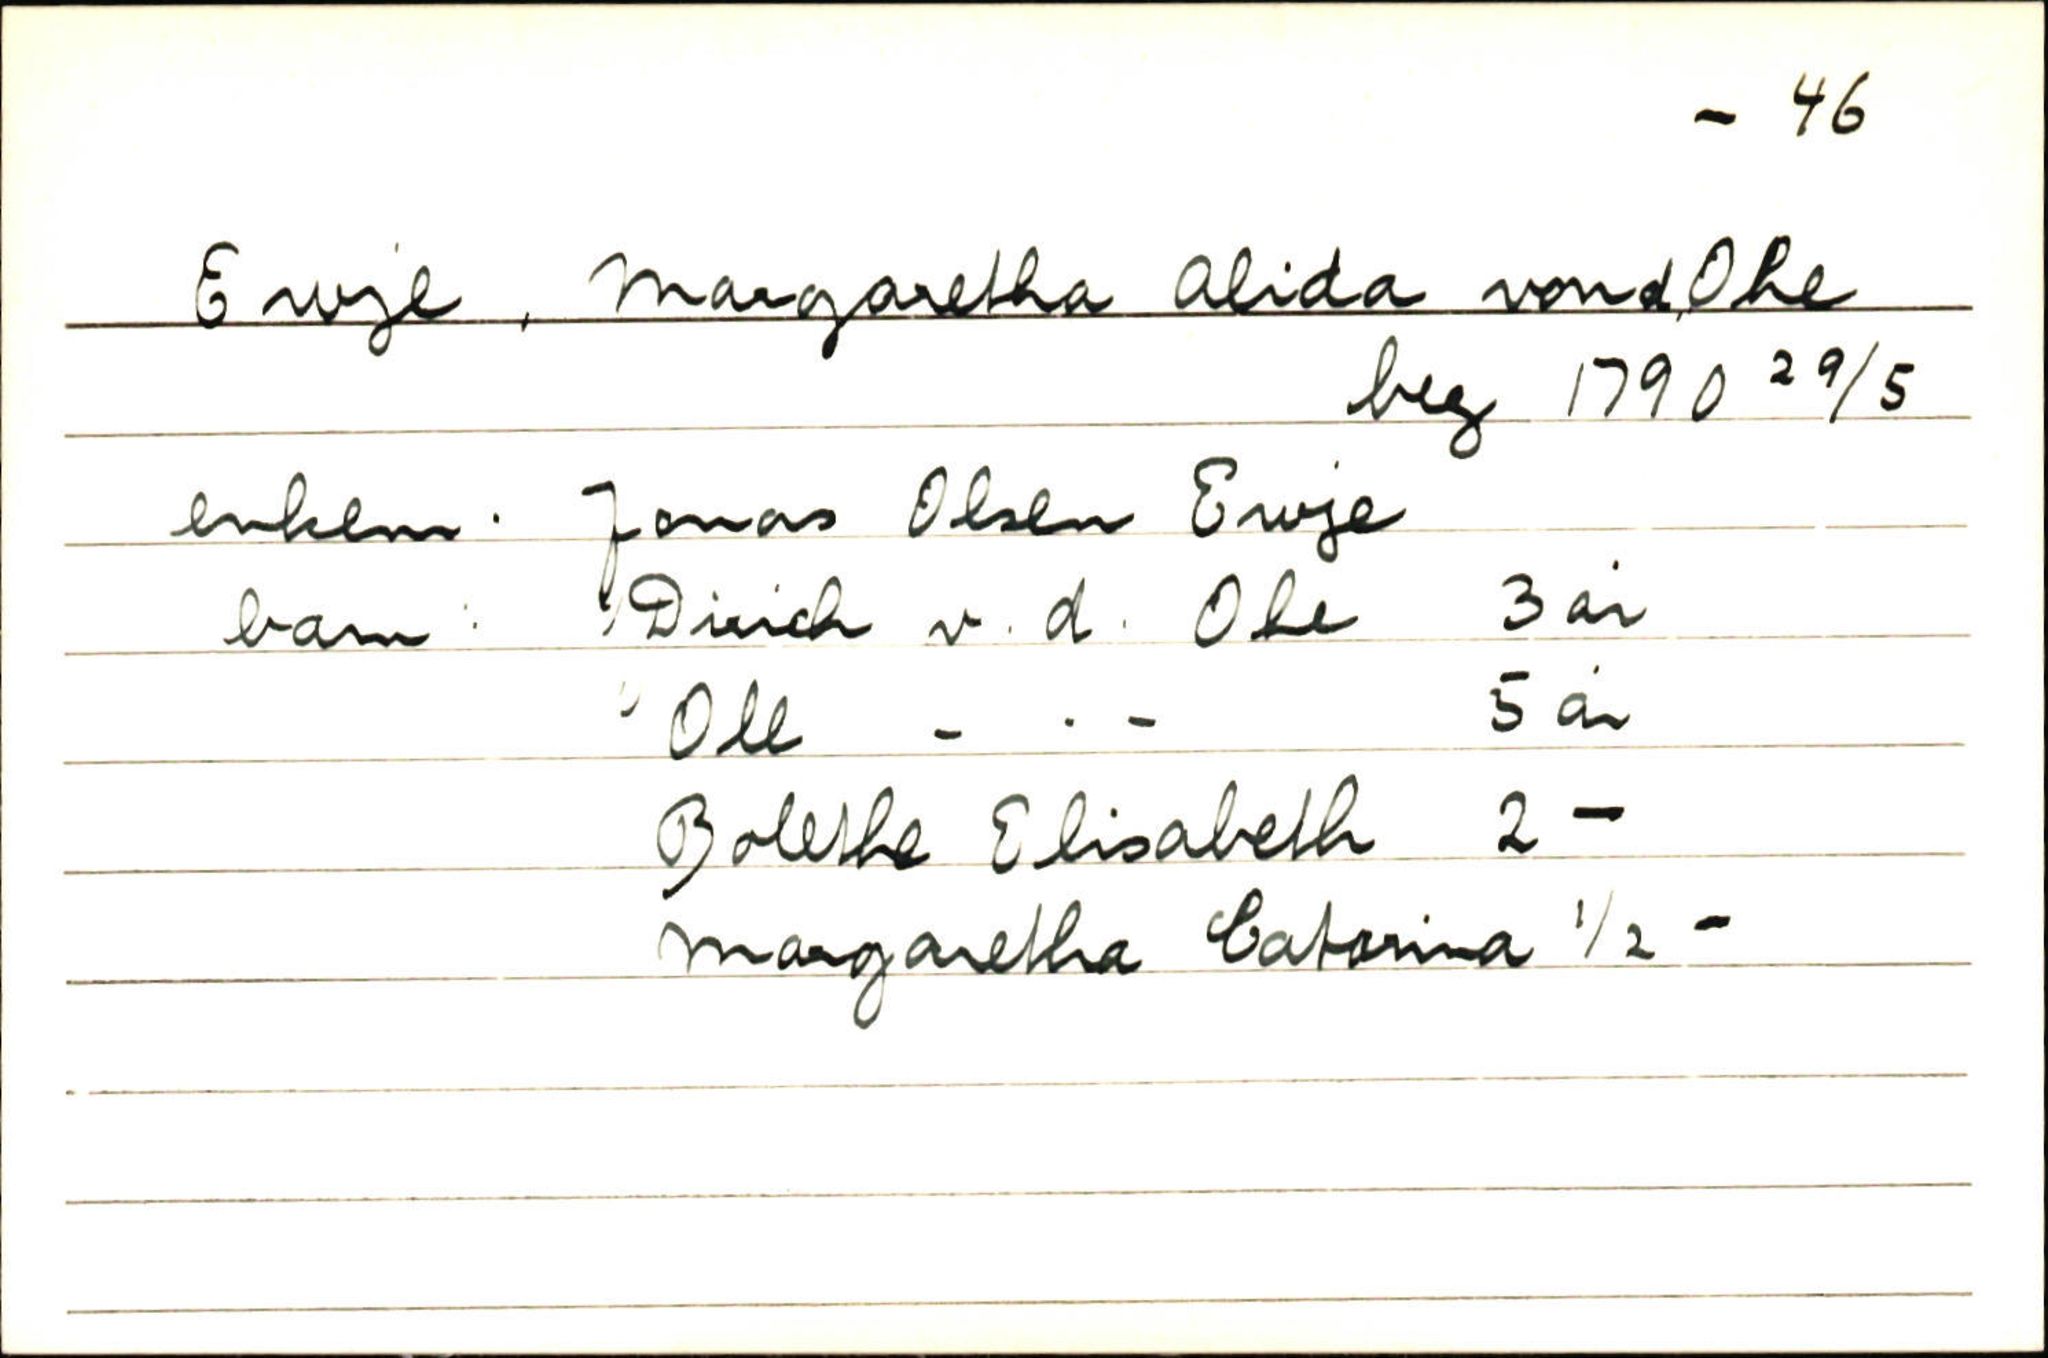 - 46
Ervje, Margaretha Alida von d. Ohe
beg 1790 29/5
enkem. Jonas Olsen Ervje
barn: Dirich v. d. Ohe 3 år
Ole - . - 5 år
Bolethe Elisabeth 2 -
Margaretha Catarina 1/2 -